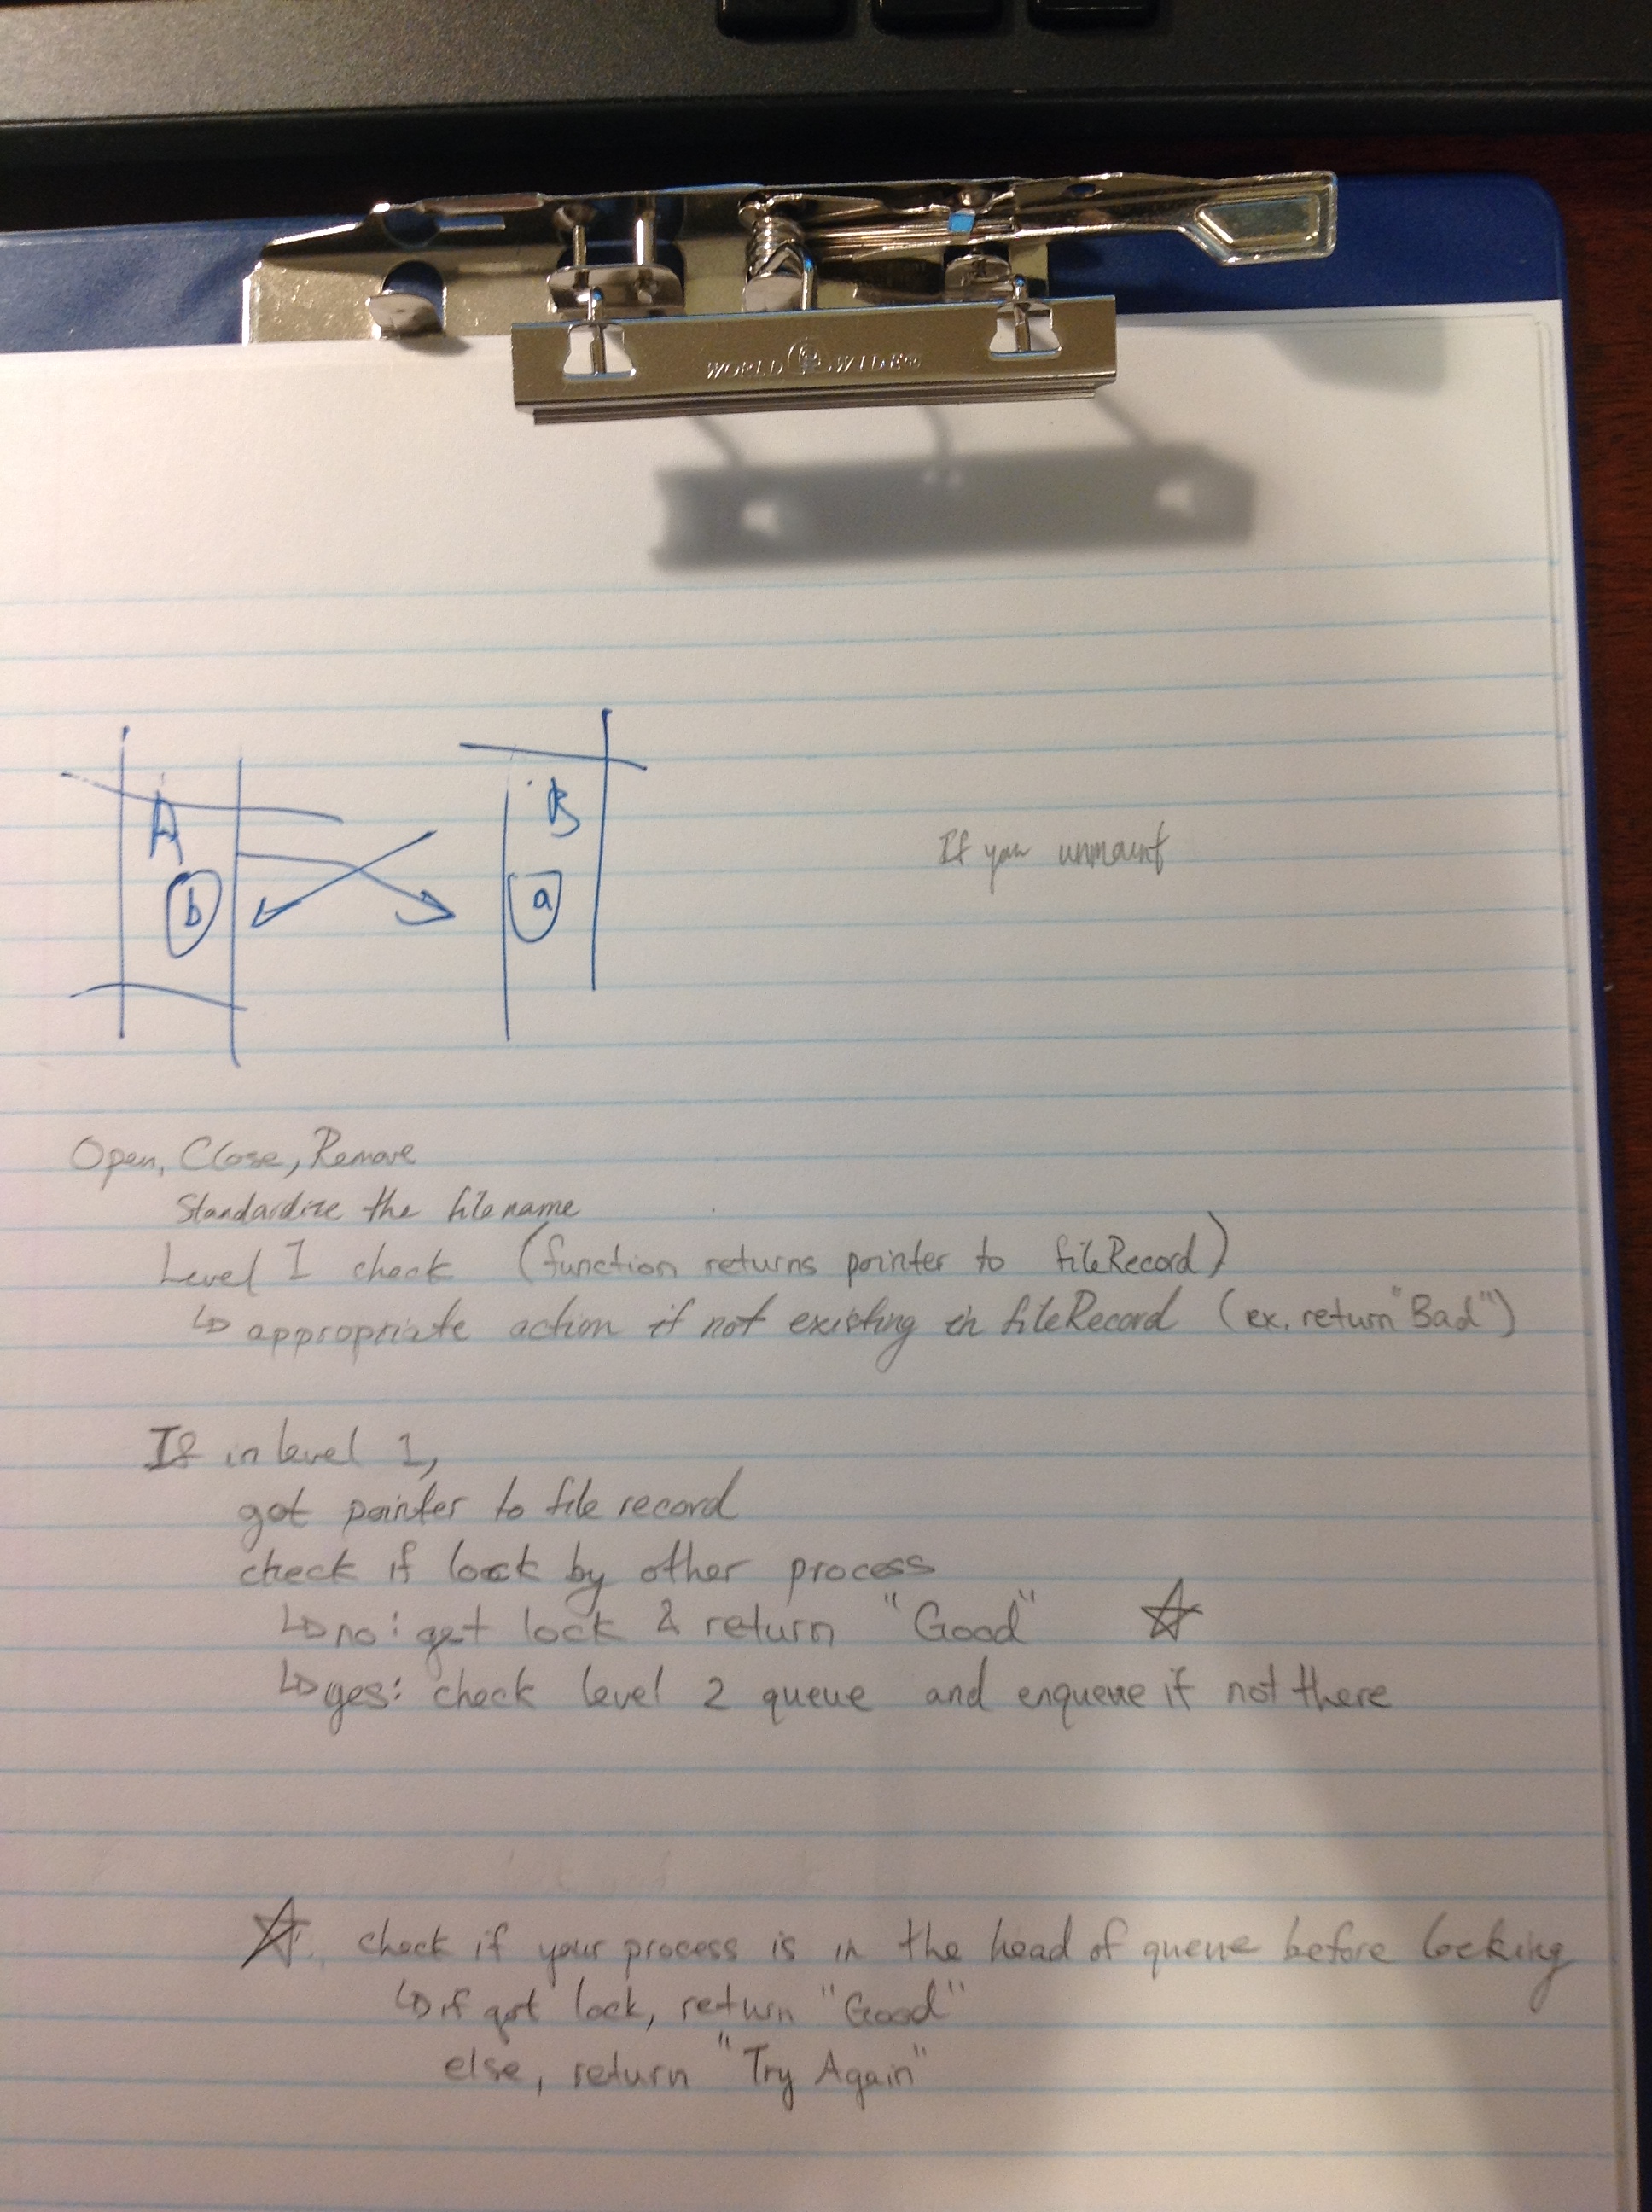 WORLD WIDE®
A
B
b
a
If you unmount
Open, Close, Remove
Standardize the filename
Level 1 check (function returns pointer to fileRecord)
↳ appropriate action if not existing in fileRecord (ex. return "Bad")
If in level 1,
got pointer to file record
check if lock by other process
↳ no: get lock & return "Good" ☆
↳ yes: check level 2 queue and enqueue if not there
☆ check if your process is in the head of queue before locking
↳ if got lock, return "Good"
else, return "Try Again"